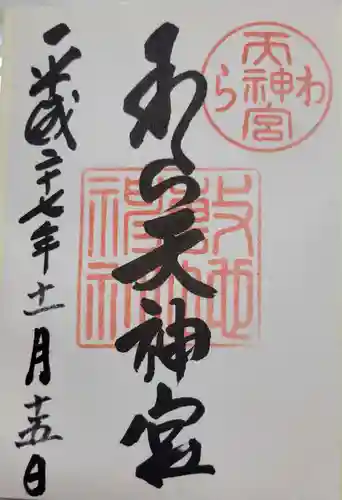 わら天神宮
わら天神宮
敷地神社
平成二十七年十一月十五日